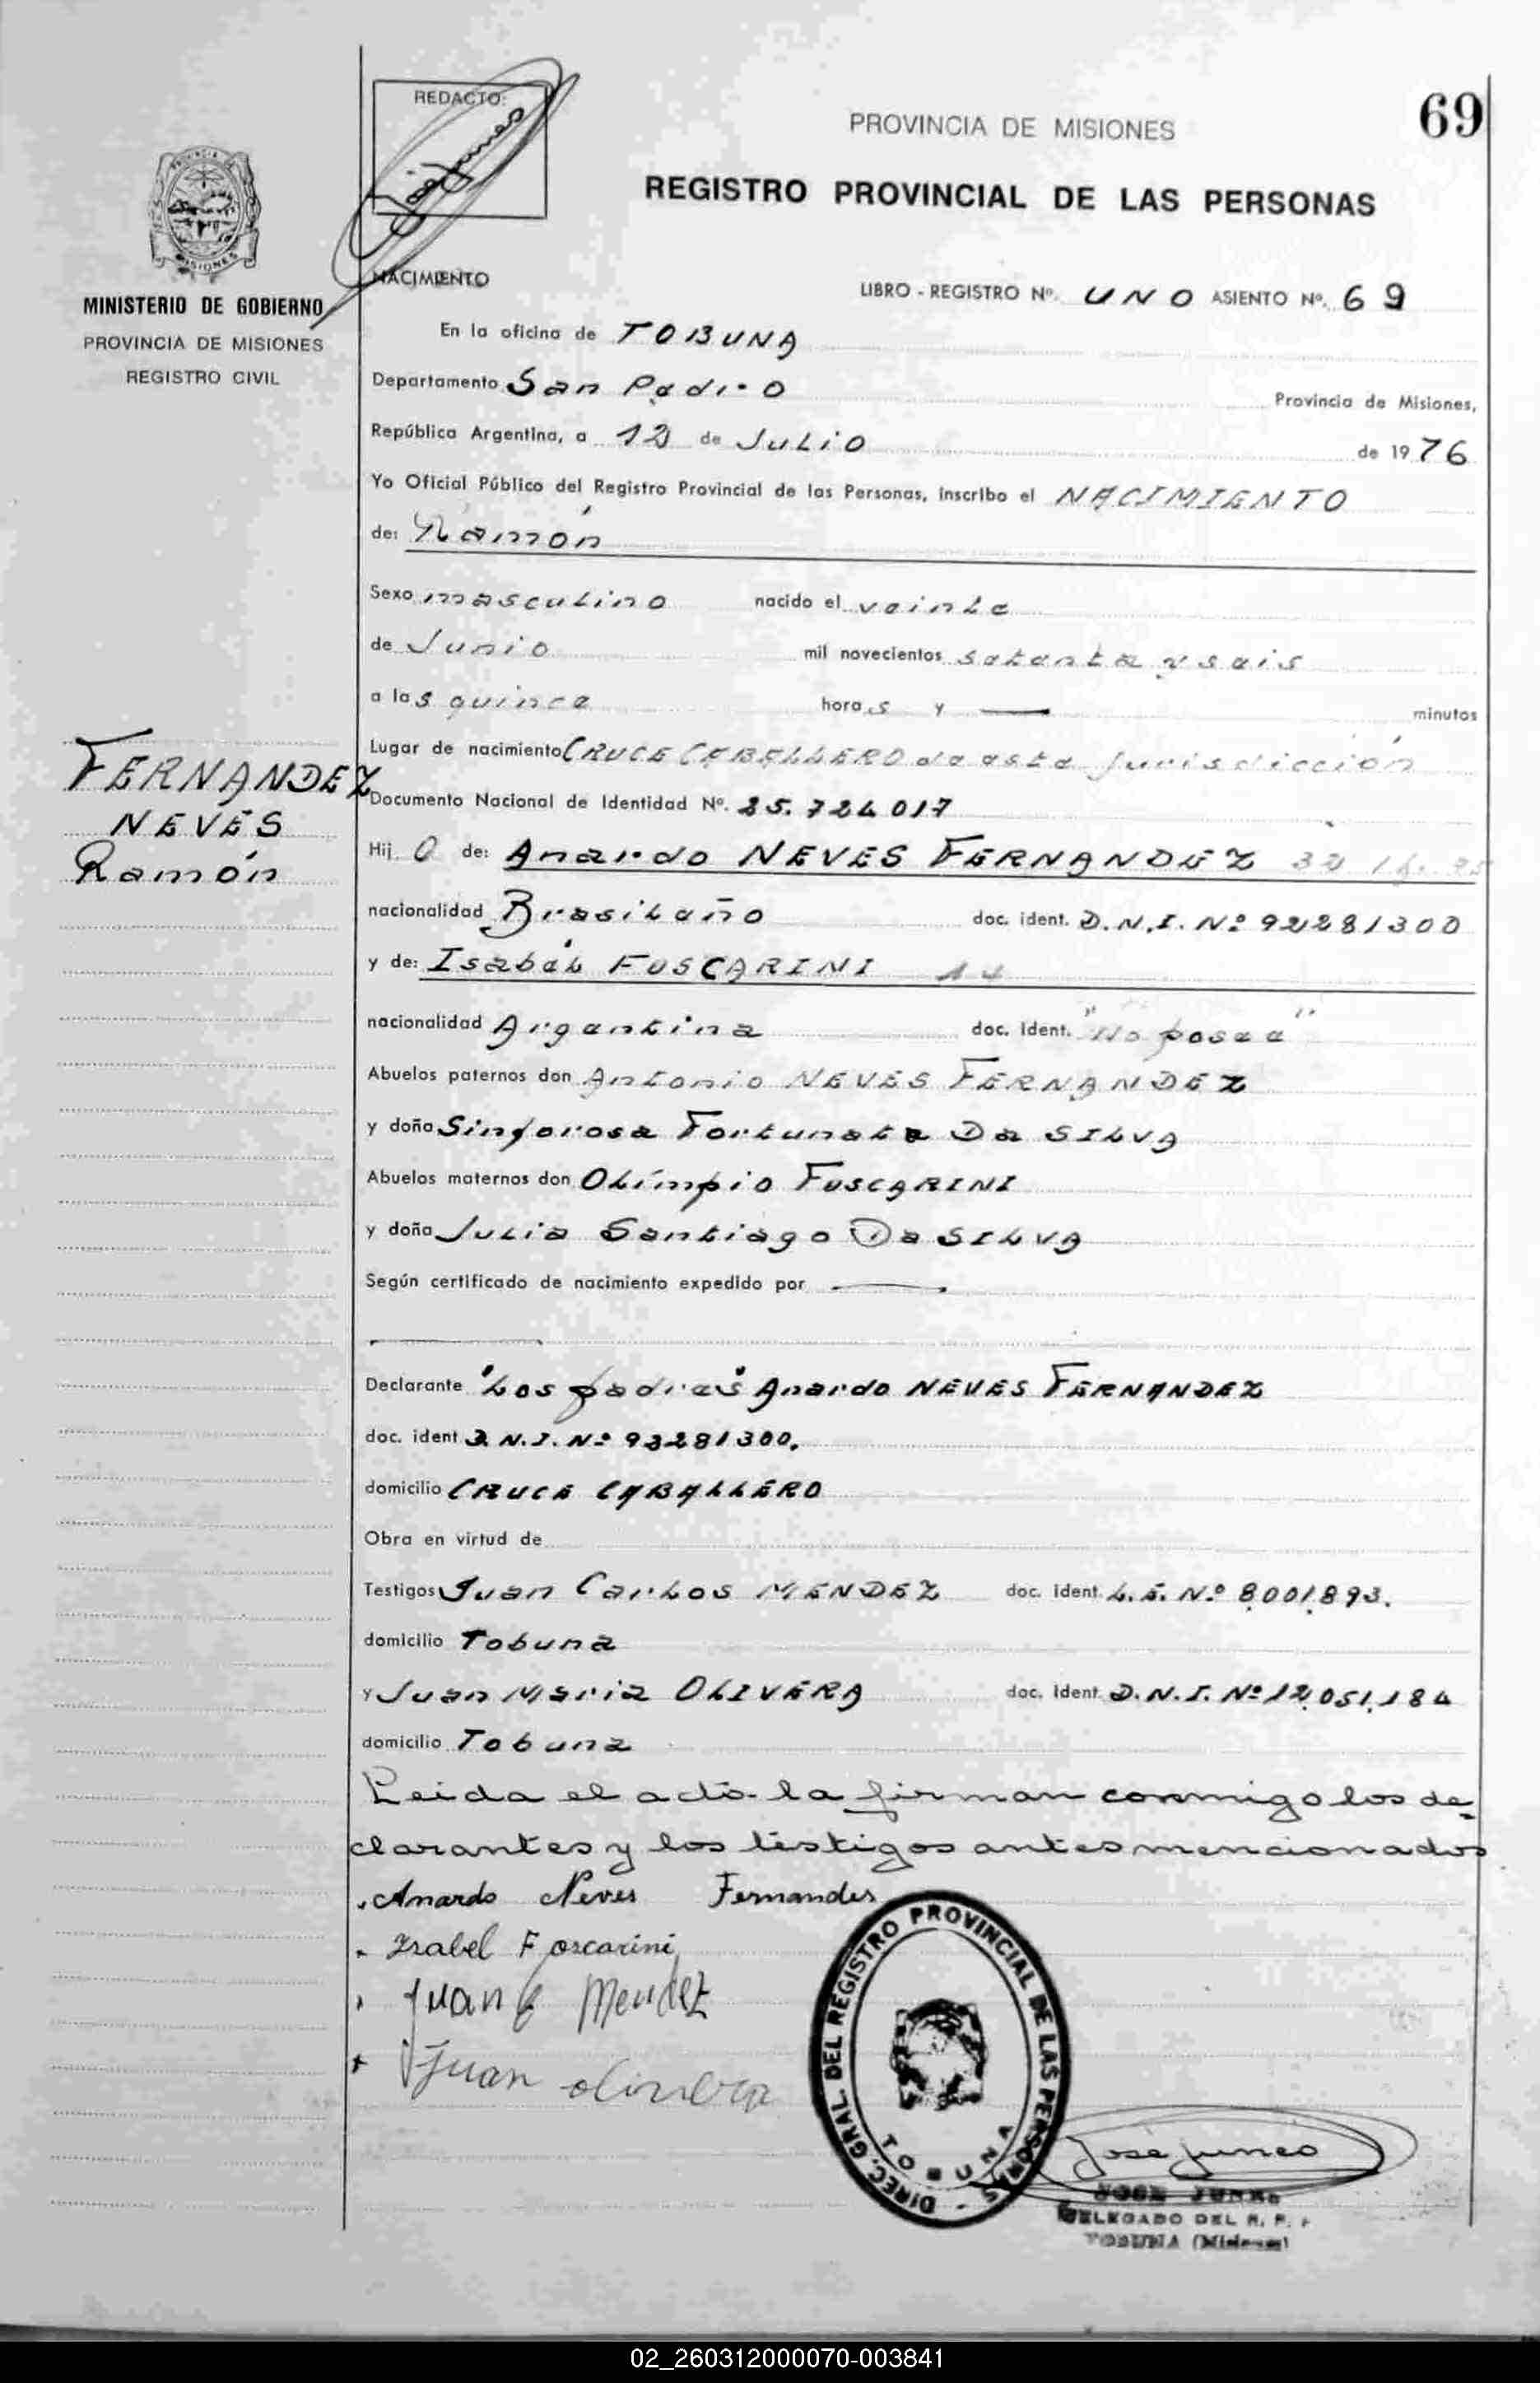 69
REDACTO:
PROVINCIA DE MISIONES
REGISTRO PROVINCIAL DE LAS PERSONAS
MINISTERIO DE GOBIERNO
PROVINCIA DE MISIONES
REGISTRO CIVIL
NACIMIENTO
LIBRO - REGISTRO Nº. UNO ASIENTO Nº. 69
En la oficina de TOBUNA
Departamento San Pedro Provincia de Misiones,
República Argentina, a 12 de Julio de 1976
Yo Oficial Público del Registro Provincial de las Personas, inscribo el NACIMIENTO
de: Ramón
Sexo masculino nacido el veinte
de Junio mil novecientos setenta y seis
a las quince horas y — minutos
Lugar de nacimiento CRUCE CABALLERO de esta Jurisdicción
FERNANDEZ
NEVES
Ramón
Documento Nacional de Identidad Nº. 25.724017
Hij O de: Anardo NEVES FERNANDEZ
nacionalidad Brasileño doc. ident. D.N.I. Nº 92281300
y de: Isabel FOSCARINI
nacionalidad Argentina doc. ident. "No posee"
Abuelos paternos don Antonio NEVES FERNANDEZ
y doña Sinforosa Fortunata Da SILVA
Abuelos maternos don Olímpio FOSCARINI
y doña Julia Santiago Da SILVA
Según certificado de nacimiento expedido por —
Declarante "Los padres" Anardo NEVES FERNANDEZ
doc. ident D.N.I. Nº 92281300.
domicilio CRUCE CABALLERO
Obra en virtud de
Testigos Juan Carlos MENDEZ doc. ident. L.E. Nº 8.001.893.
domicilio Tobuna
y Juan Maria OLIVERA doc. ident. D.N.I. Nº 12.051.184
domicilio Tobuna
Leida el acto la firman conmigo los de-
clarantes y los testigos antes mencionados
Anardo Neves Fernandes
Isabel Foscarini
Juan C Mendez
Juan olivera
DIREC. GRAL. DEL REGISTRO PROVINCIAL DE LAS PERSONAS -
TOBUNA
José Juneo
JOSE JUNEO
DELEGADO DEL R. P.
TOBUNA (Misiones)
02_260312000070-003841